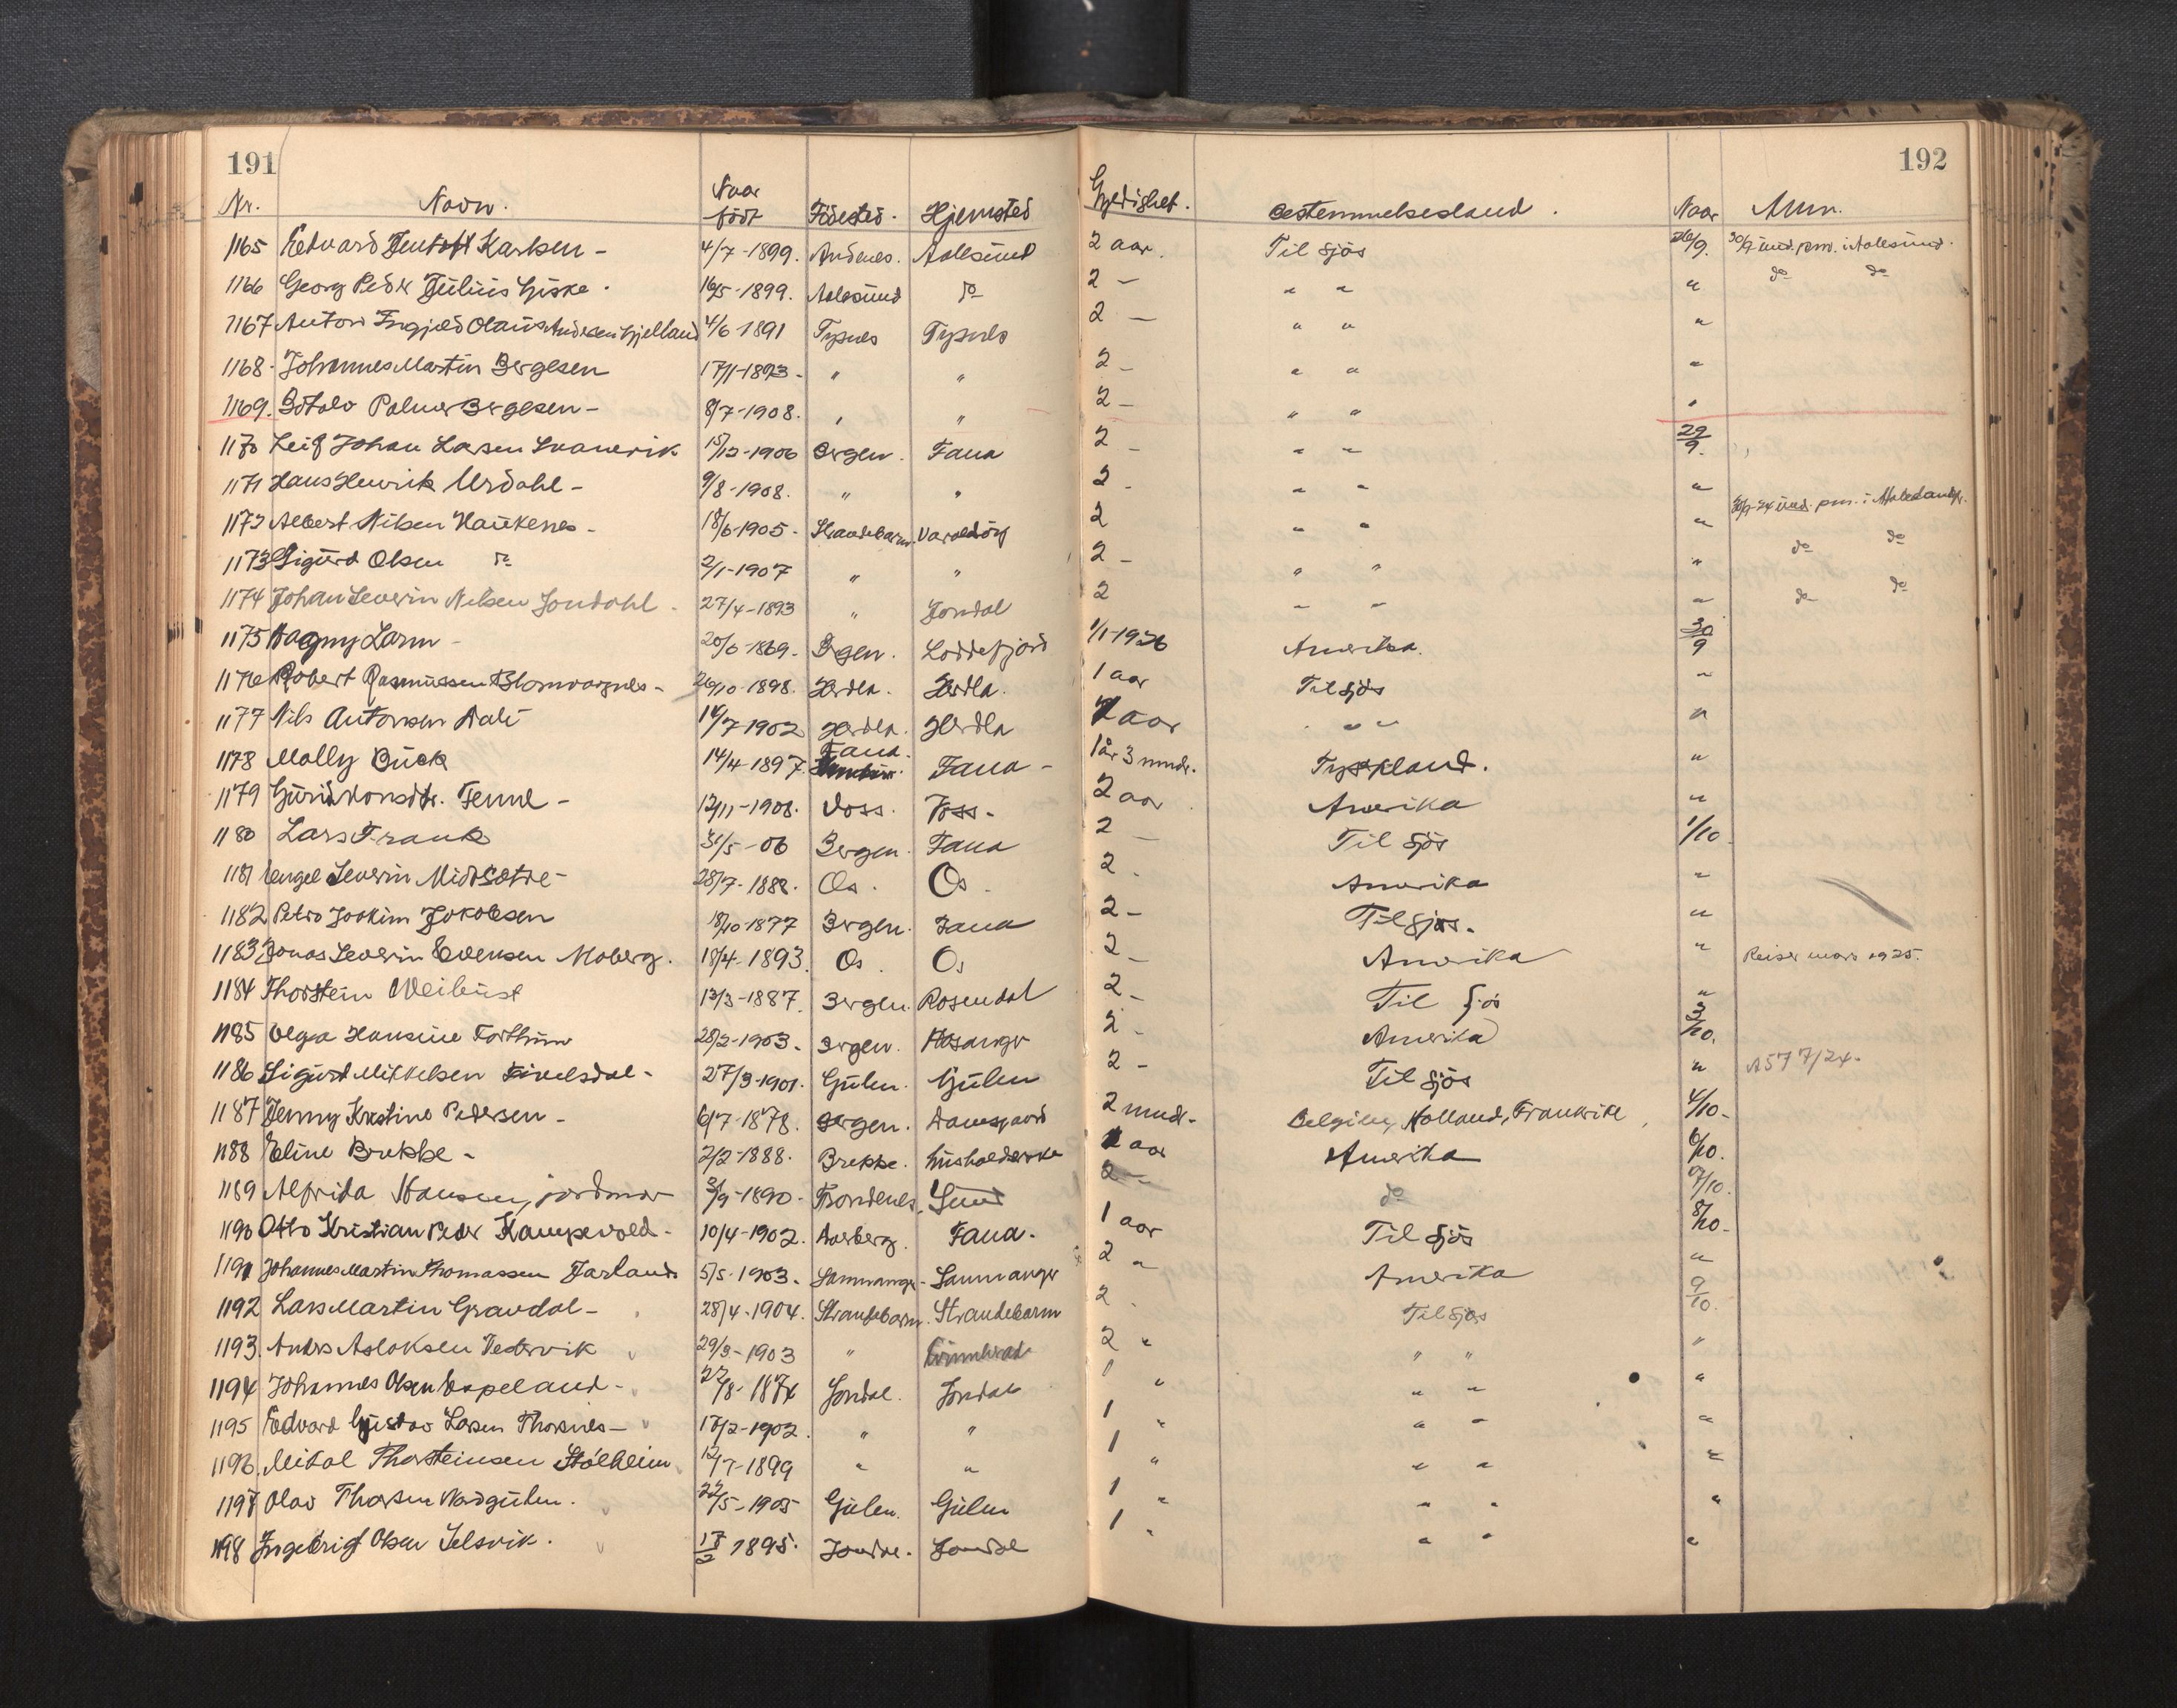 191 192
Nr. Navn. Naar født Fødested. Hjemsted Gyldighet. Bestemmelsesland. Naar Anm.
1165 Edvard Karlsen - 4/7-1899. Andenes. Aalesund 2 aar. Til sjøs 26/9. 30/9 und. pm. i Aalesund.
1166 Georg Peder Julius Giske. 16/5-1899. Aalesund do 2 - " " " do do
1167 Anton Ingjald Olaus Andersen Gjelland 4/6 1891 Tysnes Tysnes 2 - " " "
1168. Johannes Martin Bergesen 17/1-1893. " " 2 - " " "
1169. Botolv Palmer Bergesen - 8/7-1908. " " 2 - " " "
1170 Leif Johan Larsen 15/12-1906 Bergen. Fana 2 - " " 29/9.
1171 Hans Henrik Urdahl - 9/8-1908. " " 2 - " " "
1172 Albert Nilsen Haukenes - 18/6-1905. Strandebarm. Varaldsøy 2 " " " 30/9-24 und. pm. i
1173 Sigurd Olsen do 2/1-1907 " " 2 - " " " do do
1174 Johan Severin Nilsen Jondahl - 27/4-1893 " Jondal 2 " " " do do
1175 Dagny Larm - 20/6-1869. Bergen. Loddefjord 1/1-1926 Amerika. 30/9
1176 Robert Rasmussen Blomvaagnes - 26/10-1898. Herdla. Herdla. 1 aar Til sjøs "
1177 Nils Antonsen Dale 14/7-1902 Herdla. Herdla aar " " "
1178 Molly Buck 14/4-1897. Fana. Fana - 1 år 3 mndr. Tyskland. "
1179 Guri Jonsdtr. Tenne - 12/11-1908. Voss. Voss. 2 aar Amerika "
1180 Lars Frank 31/5-06 Bergen. Fana 2 - Til sjøs 1/10.
1181 Engel Severin Midtsætre - 28/7-1888. Os. Os. 2 - Amerika "
1182 Petro Joakim Jakobsen 18/10-1877 Bergen. Fana 2 - Til sjøs. "
1183 Jonas Severin Evensen Moberg. 18/4-1893. Os. Os 2 - Amerika " Reiser mars 1925.
1184 Thorstein Weibust 13/3-1887. Bergen. Rosendal 2 - Til sjøs "
1185 Olga Hansine Forthun 28/2-1903. Bergen. Hosanger 2 - Amerika 3/10.
1186 Sigurd Mikkelsen - 27/3-1901. Gulen. Gulen 2 - Til sjøs " A577/24.
1187 Jenny Kristine Pedersen - 6/7-1878. Bergen. Damsgaard 2 mndr. Belgien, Holland, Frankrike, 4/10.
1188 Eline Brekke - 2/2-1888. Brekke. husholderske aar Amerika 6/10.
1189 Alfrida Hansen, jordmor 3/9-1890. Trondenes. Sund 2 - do 7/10.
1190 Otto Kristian Peder Kampevold - 10/4-1902. Fana. 1 aar Til sjøs 8/10.
1191 Johannes Martin Thomassen Tarland 5/5-1903. Samnanger. Samnanger 2 " Amerika "
1192 Lars Martin Gravdal - 28/4-1904. Strandebarm. Strandebarm 2 - Til sjøs 9/10.
1193. Anders Aslaksen Vedervik 29/3-1903 " Kvinnherad 2 " " " "
1194 Johannes Olsen Espeland - 22/8-1874 Jondal. Jondal 1 " " " "
1195 Edvard Gustav Larsen Thorsnes - 17/2-1902. " " 1 " " " "
1196 Mikal Thorsteinsen Stølheim. 12/7-1899 " " 1 " " " "
1197 Olav Thorsen Nordgulen. 22/5-1905 Gulen. Gulen 1 " " " "
1198 Ingebrigt Olsen Selsvik. 17/2 1895. Jondal. Jondal 1 " " " "